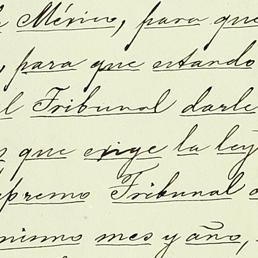 México, para que
, para que estando
l Tribunal darle
que exige la ley
premo Tribunal
mismo mes y año,